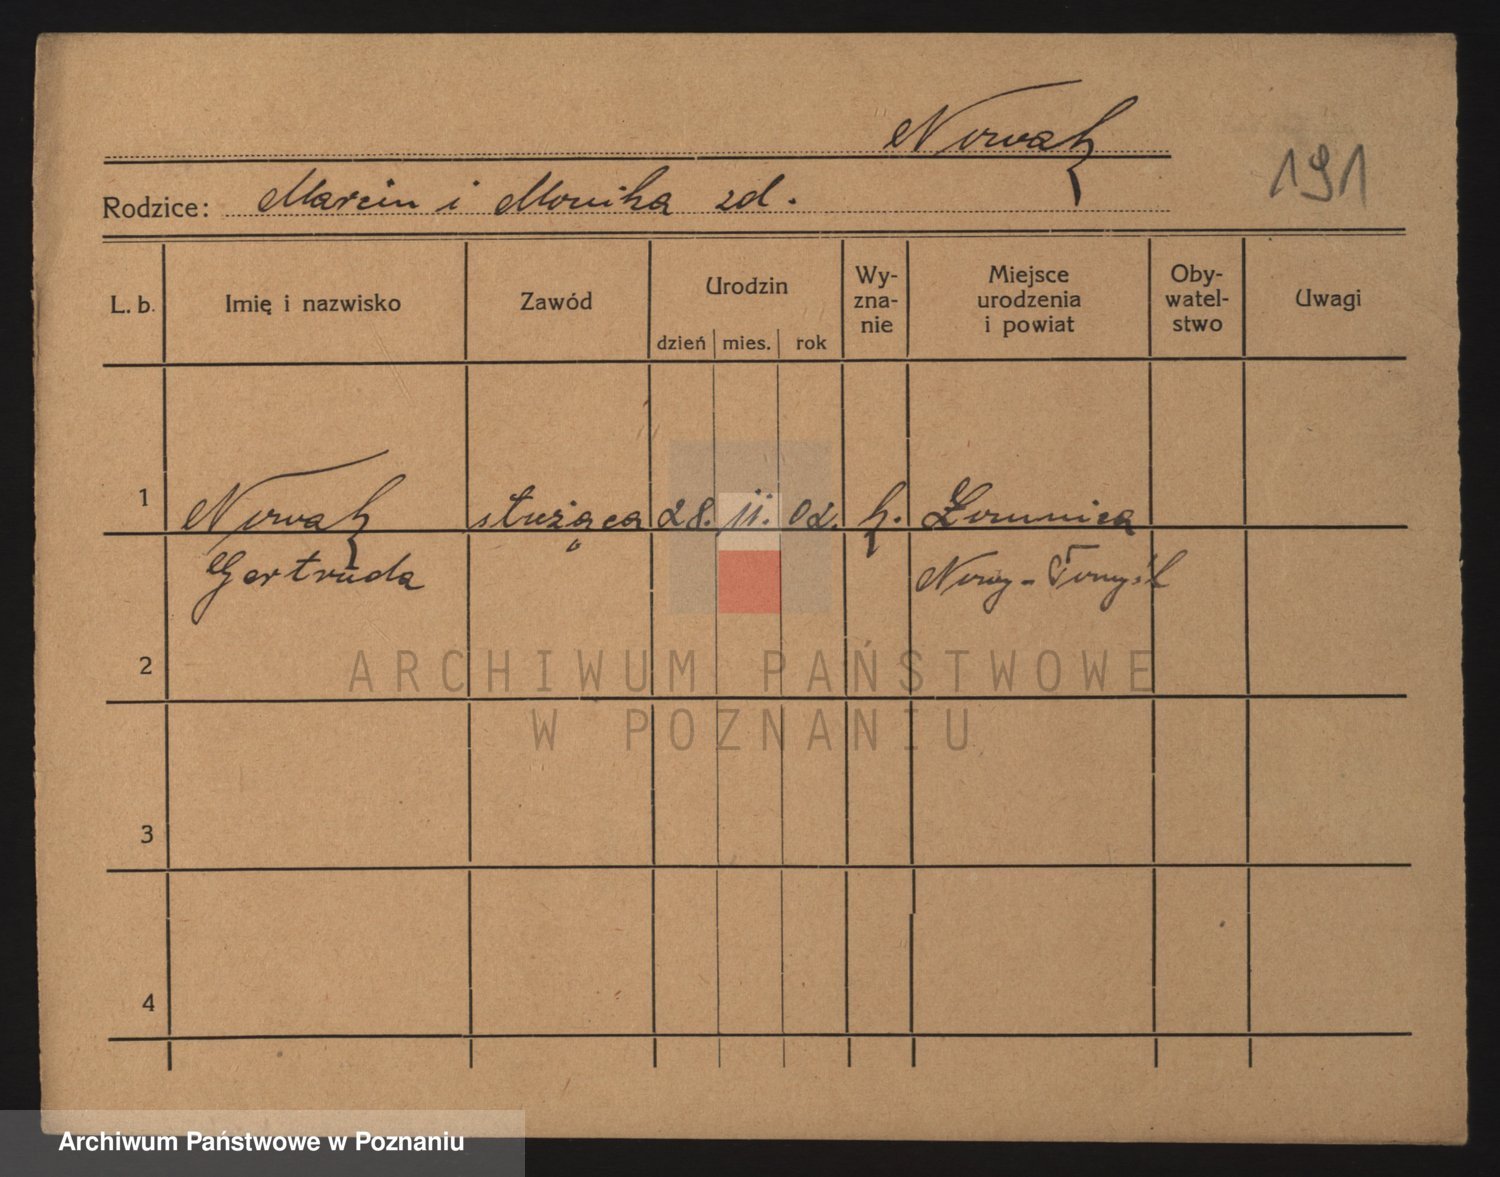 Nowak
191
Rodzice: Marcin i Monika zd.
L. b. Imię i nazwisko Zawód Urodzin dzień mies. rok Wy-zna-nie Miejsce urodzenia i powiat Oby-watel-stwo Uwagi
1 Nowak służąca 28. 11. 02. k. Łomnica
Gertruda Nowy-Tomyśl
2
3
4
ARCHIWUM PAŃSTWOWE
W POZNANIU
Archiwum Państwowe w Poznaniu